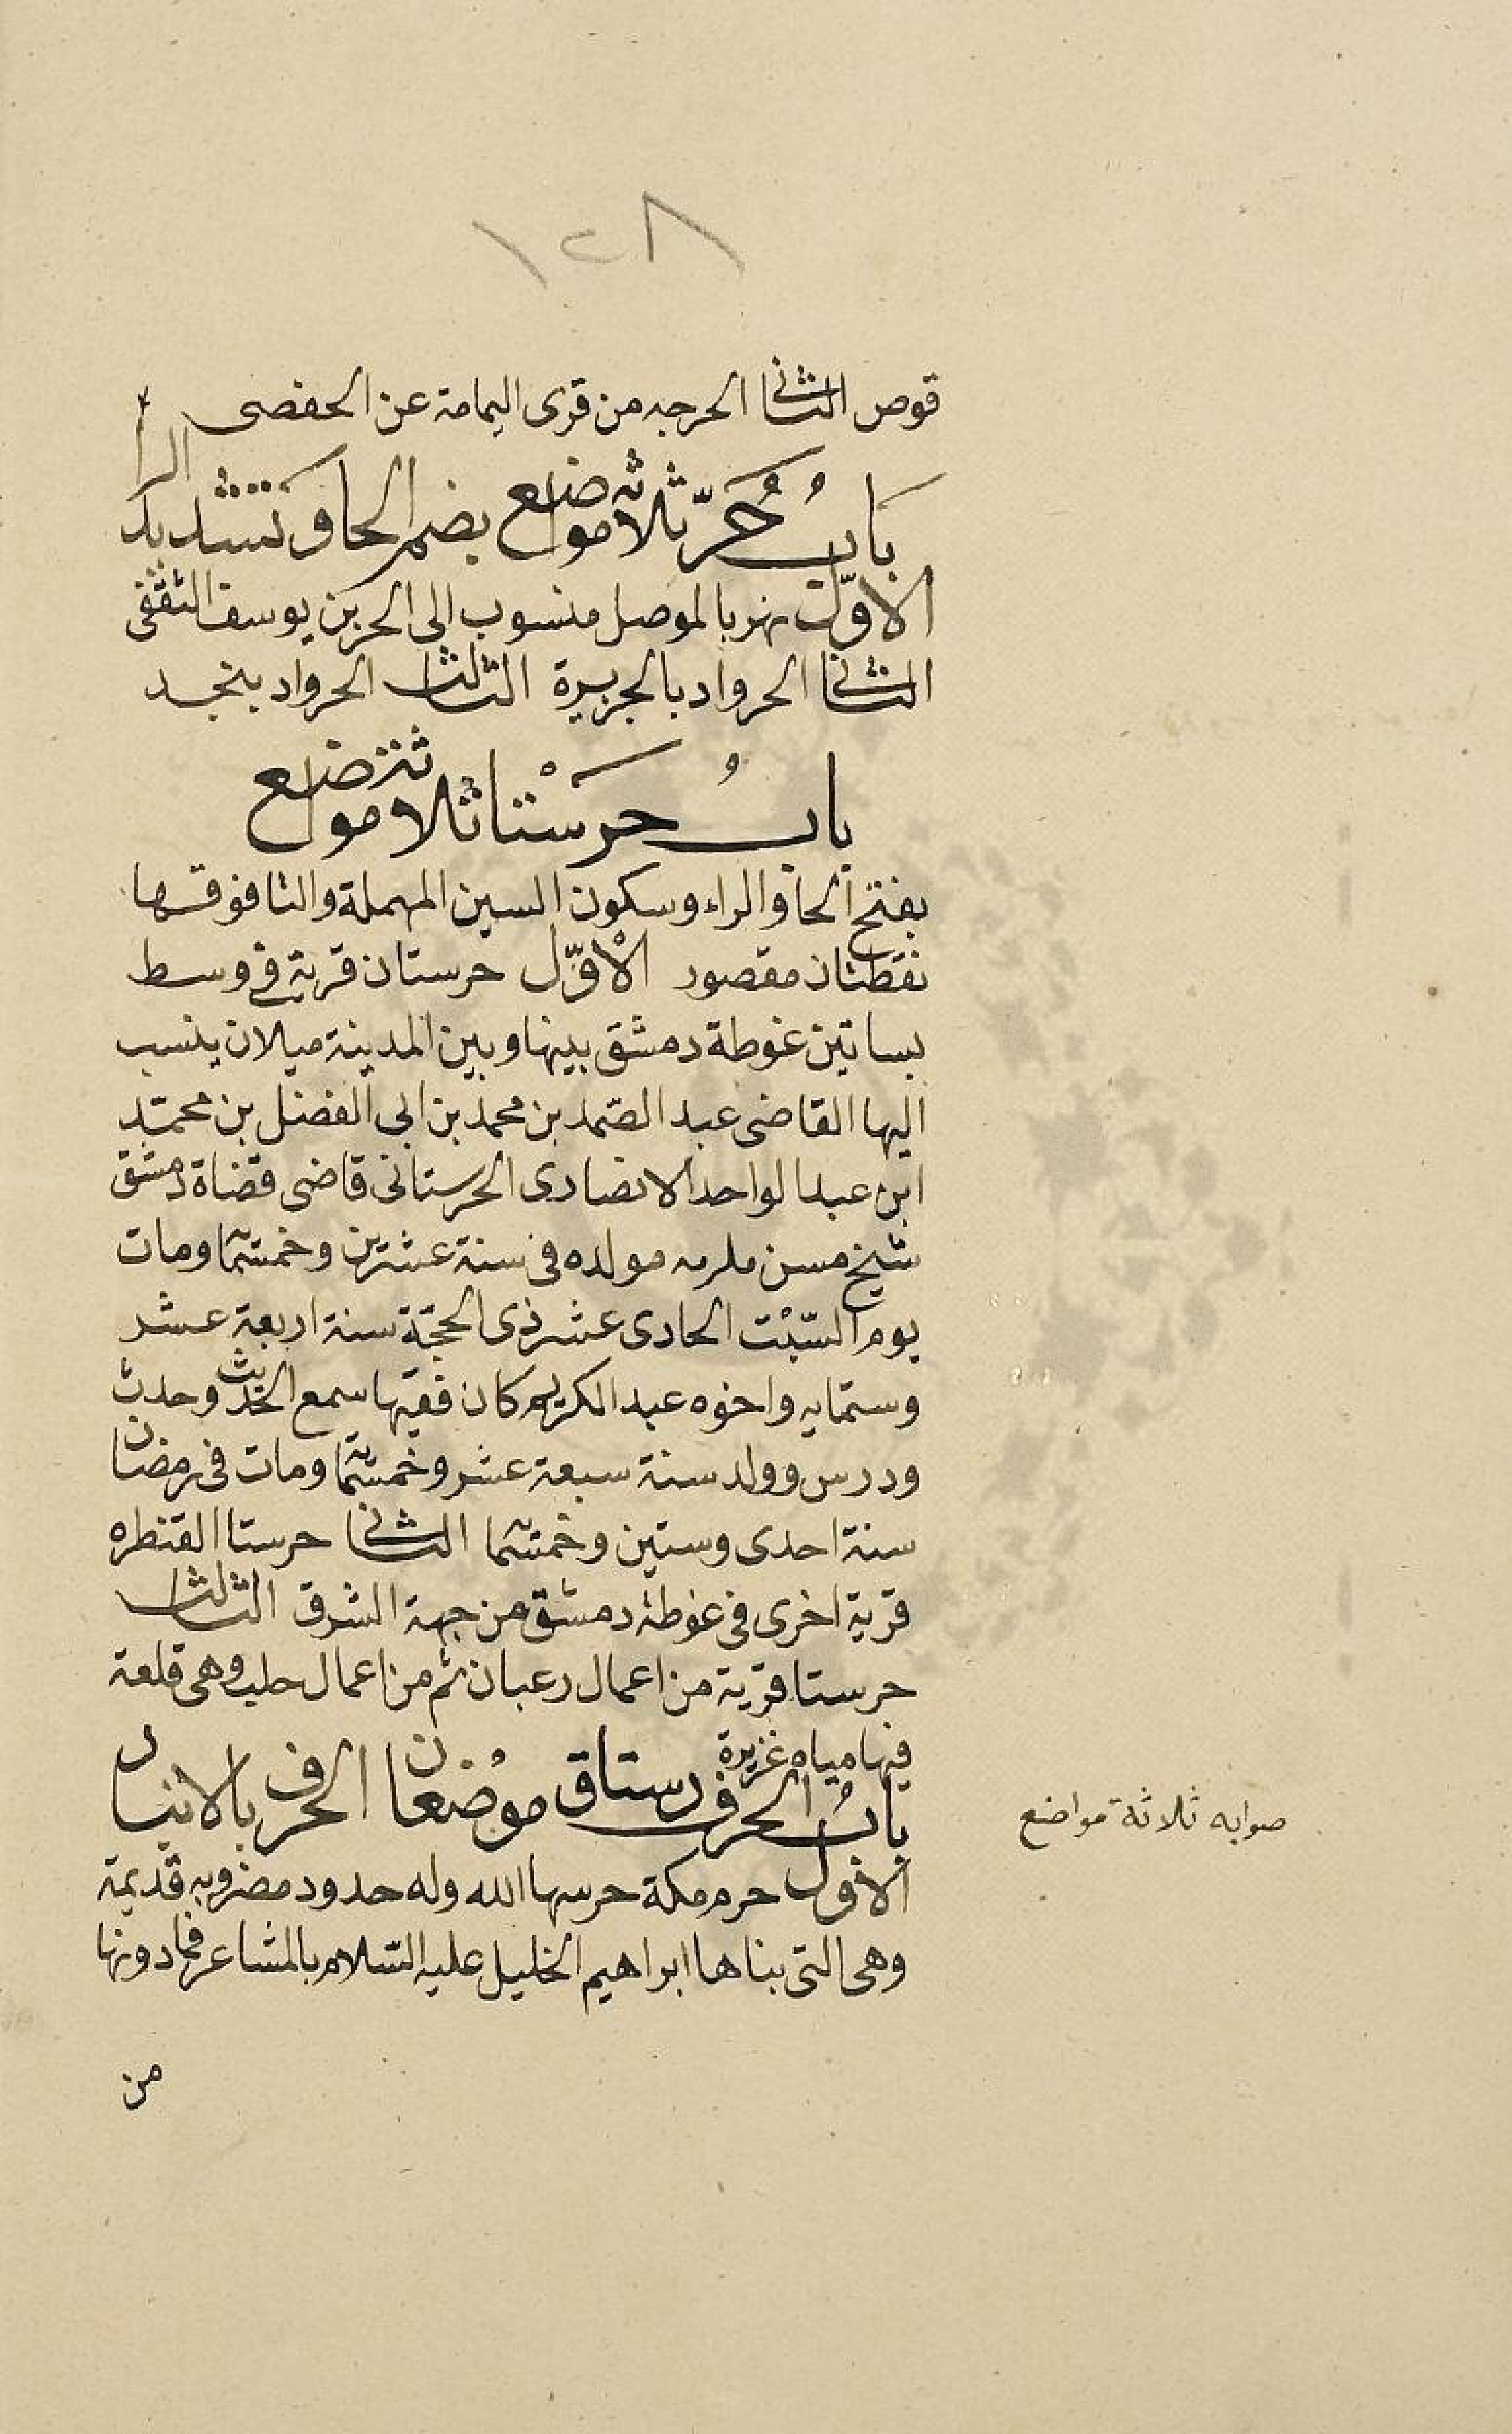 ١٢٨
قوص الثانى الحرجه من قرى اليمامة عن الحفصى
بابُ حُرّ ثلاثه مواضع بضم الحا وتشديد الرا
الاوّل نهر بالموصل منسوب الى الحر بن يوسف الثقفى
الثانى الحر واد بالجزيرة الثالث الحر واد بنجد
بابُ حرَسْتا ثلاثة مواضع
بفتح الحا والراء وسكون السين المهملة والتا فوقها
نقطتان مقصور الاوّل حرستان قرية فى وسط
بساتين غوطة دمشق بينها وبين المدينة ميلان ينسب
اليها القاضى عبد الصّمد بن محمد بن ابى الفضل بن محمّد
ابن عبد الواحد الانصارى الحرستانى قاضى قضاة دمشق
شيخ مسن مولده فى سنة عشرين وخمسما ومات
يوم السّبْت الحادى عشر ذى الحجّة سنة اربعة عشر
وستمايه واخوه عبد الكريم كان فقيها سمع الحديث وحدث
ودرس وولد سنة سبعة عشر وخمسما ومات فى رمضان
سنة احدى وستين وخمسما الثانى حرستا القنطره
قرية اخرى فى غوطة دمشق من جهة الشرق الثالث
حرستا قرية من اعمال رعبان ثم من اعمال حلب وهى قلعة
فيها مياه غزيرة
بابُ الحرف رستاق موضعان الحرف بالانبار
صوابه ثلاثة مواضع
الاول حرم مكة حرسها الله وله حدود مضروبه قديمة
وهى التى بناها ابراهيم الخليل عليه السّلام بالمشاعر فما دونها
من